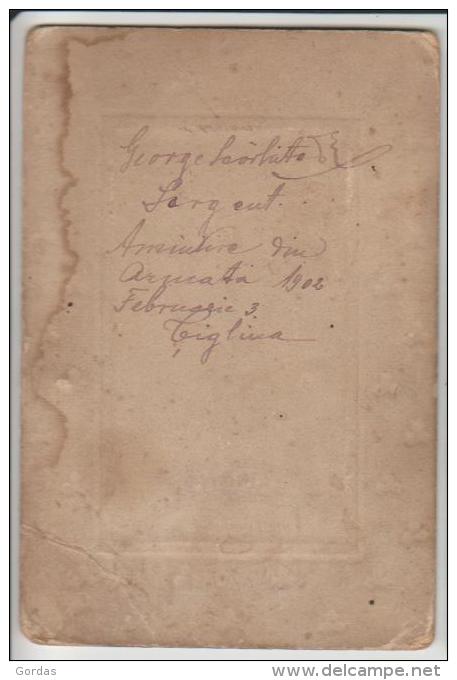 George
Sergent.
Amintire din
Armata 1902
Februarie 3
Țiglina
Gordas
www.delcampe.net